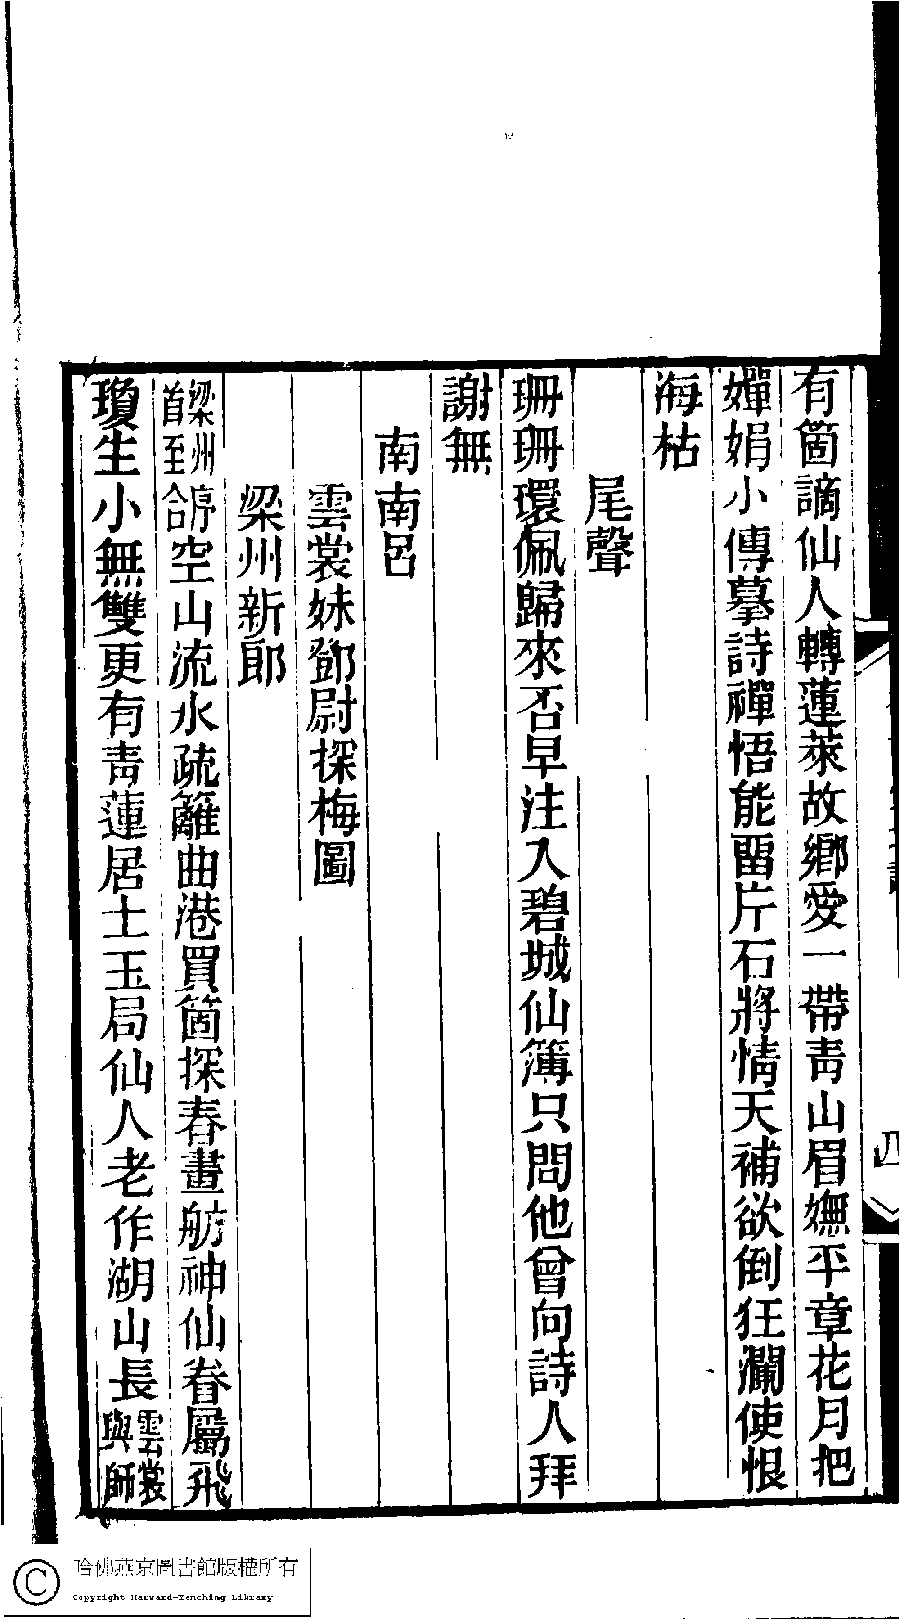 有箇謫仙人轉蓬萊故鄉愛一帶靑山眉嫵平章花月把
嬋娟小傳摹詩禪悟能畱片石將情天補欲倒狂瀾使恨
海枯
尾聲
珊珊環佩歸來否早注入碧城仙簿只問他曾向詩人拜
謝無
南南呂
雲裳妹鄧尉探梅圖
梁州新郎
梁州
首至
合序空山流水疏籬曲港買箇探春畫舫神仙眷屬飛
瓊生小無雙更有靑蓮居士玉局仙人老作湖山長雲裳
與師
四
哈佛燕京圖書館版權所有
Copyright Harvard-Yenching Library